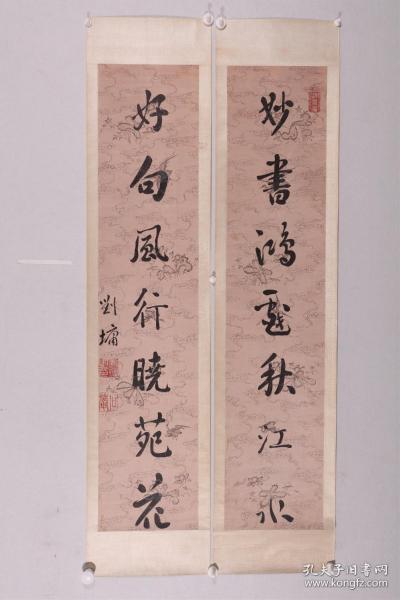 妙書鴻戲秋江水
好句風行曉苑花
劉墉
孔夫子旧书网
www.kongfz.com